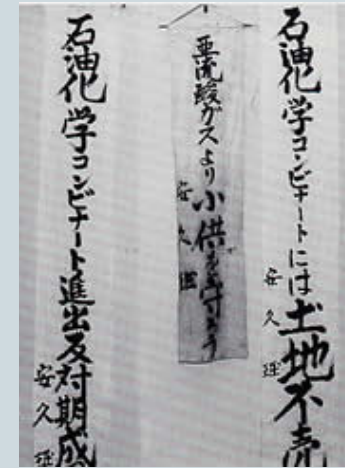 石油化学コンビナートには土地不売
安久
亜硫酸ガスより小供を守ろう
安久
石油化学コンビナート進出反対期成
安久